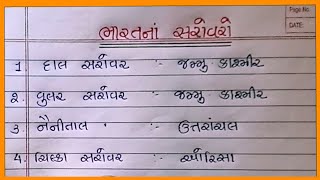 Page No.
DATE:
ભારતનાં સરોવરો
1. દાલ સરોવર :- જમ્મુ કાશ્મીર
2. વુલર સરોવર :- જમ્મુ કાશ્મીર
3. નૈનીતાલ :- ઉત્તરાંચલ
4. ચિલ્કા સરોવર :- ઓરિસા